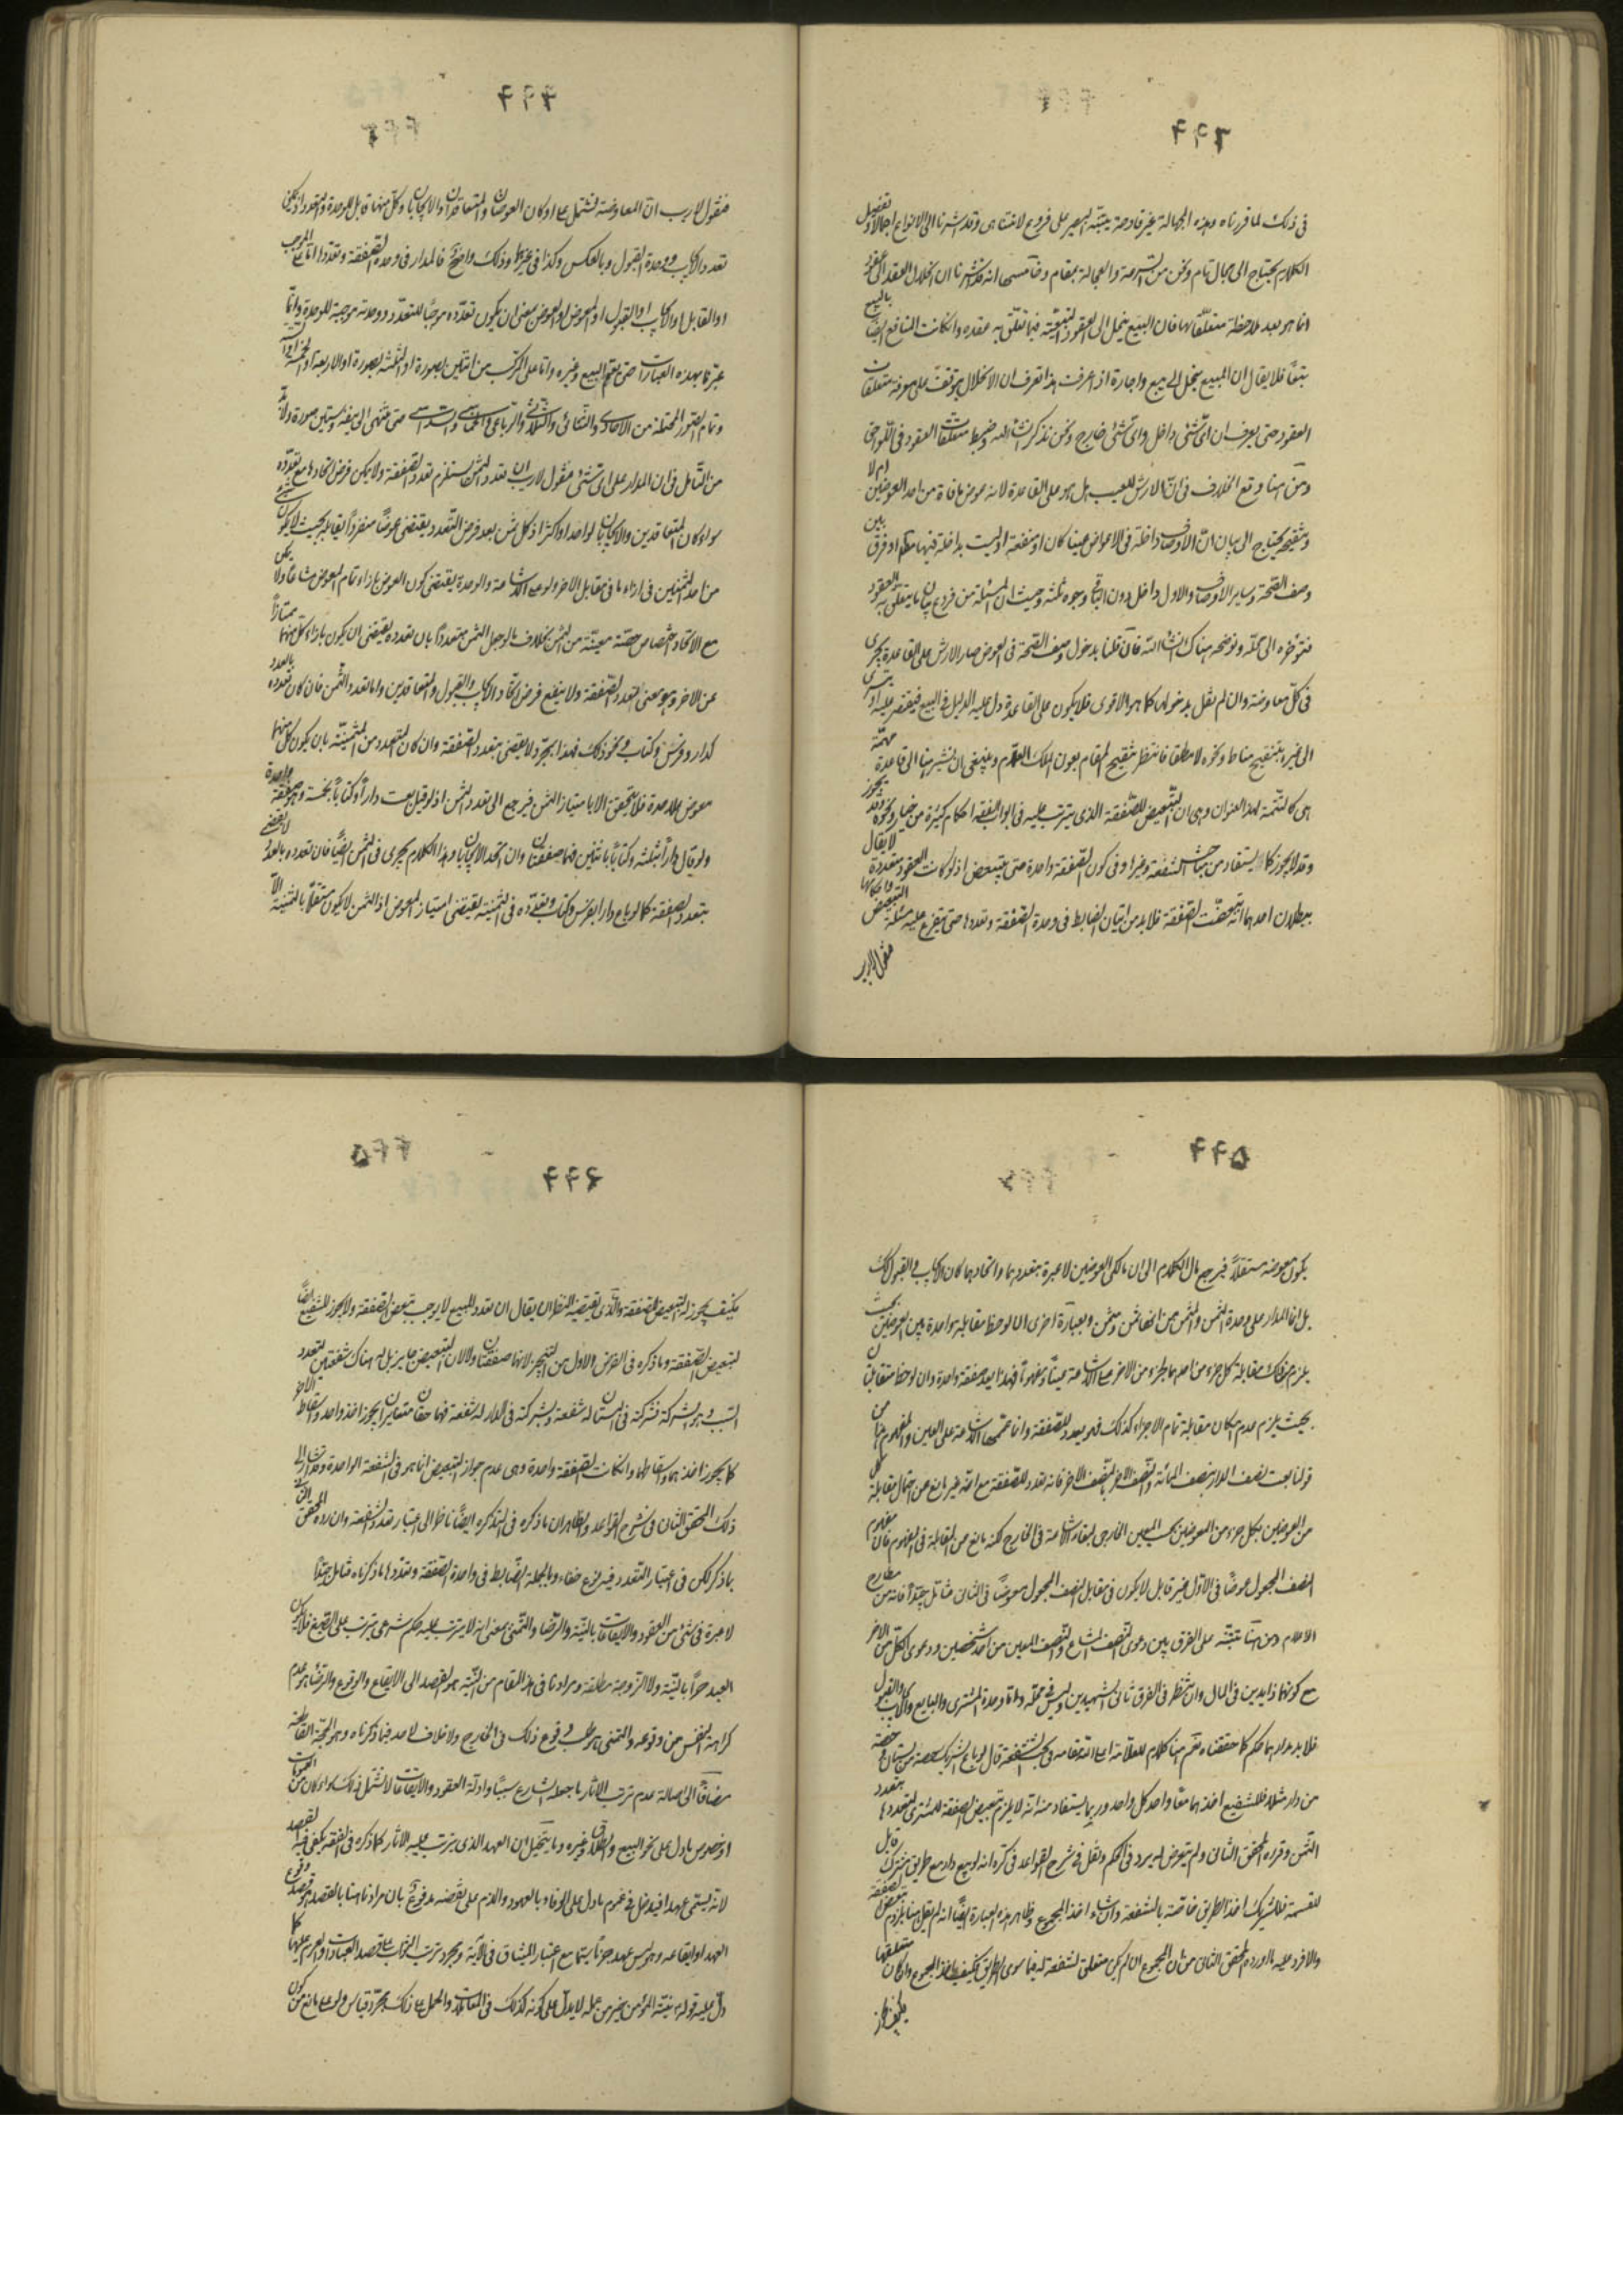 في ذلك لما قررناه وهذه الجهالة غير قادحة يتنبّه البصير على فروع لا تتناهى وقد اشرنا الى الانواع اجمالا وتفصيل
الكلام يحتاج الى مجال تام ونحن من السرعة والعجالة بمقام وخامسها انه قد اشرنا ان انحلال العقد الى عقود
انما هو بعد ملاحظة متعلّقاتها فان البيع ينحل الى العقود التبعيّة فيما تعلّق به عقده وان كانت المنافع ايضاً بالبيع
تبعًا فلا يقال ان المبيع ينحل الى بيع واجارة اذا عرفت هذا تعرف ان الانحلال يتوقف على معرفة متعلقات
العقود حتى يعرف ان اىّ شئ داخل واىّ شئ خارج ونحن نذكر انشاء الله وضبط متعلقات العقود في اللواحق
ومن هنا وقع الخلاف في انّ الارش للعيب هل هو على القاعدة لانه عوض ما فات من احد العوضين ام لا
وتنقيحه يحتاج الى بيان انّ الاوصاف داخلة في الاعواض عينا كان او منفعة او ليست بداخلة فيها مطلقا او فرق بين
وصف الصّحة وساير الاوصاف والاول داخل دون الباقي وجوه ثلثة وحيث ان المسئلة من فروع بيان ما يتعلّق به العقود
فنؤخره الى محلّه ونوضحه هناك انشاء الله فان قلنا بدخول وصف الصّحة في العوض صار الارش على القاعدة يجرى
في كلّ معاوضة وان لم نقل بدخولها كما هو الاقوى فلا يكون على القاعدة دل عليه الدليل في البيع فيقتصر عليه او يتسرى
الى غيره بتنقيح مناط ونحوه لا مطلقا فانتظر تنقيح المقام بعون الملك العلام وينبغي ان نشير هنا الى قاعدة مهمّة
هي كالتتمة لهذا العنوان وهي ان التبعيض للصّفقة الذى يترتب عليه في ابواب الفقه احكام كثيرة من خيار ونحوه قد يجوز
وقد لا يجوز كما يستفاد من مباحث الشفعة وغيرها وفي كون الصّفقة واحدة حتى يتبعض اذ لو كانت العقود متعددة لا يقال
ببطلان احدهما انه تبعضت الصّفقة فلا بد من اتيان الضابط في وحدة الصّفقة وتعددها حتى يتفرع عليه مسئلة التبعيض واحكامها
فنقول لا ريب
٤٤٣
فنقول لا ريب انّ المعاوضة تشتمل على اركان العوضان والمتعاقدان والايجابان وكلّ منها قابل للوحدة والتعدد اذ يمكن
تعدد الايجاب ووحدة القبول وبالعكس وكذا في غيرها وذلك واضحٌ فالمدار في وحدة الصّفقة وتعددها اما على الموجب
او القابل او الايجاب او القبول او المعوض او العوض بمعنى ان يكون تعدّده موجبًا للتعدّد ووحدته موجبة للوحدة وانّما
عبّرنا بهذه العبارات حتى يعم البيع وغيره واما على المركّب من اثنين بصورة او الثلثة بصورة او الاربعة او الخمسة او الستة
وتمام الصّور المحتملة من الاحادى والثنائى والثلاثى والرباعى والخماسى والسداسى حتى تنتهى الى نيف وستّين صورة ولا بدّ
من التّأمل في ان المدار على اىّ شئ فنقول لا ريب ان تعدد الثمن يستلزم تعدد الصّفقة ولا يمكن فرض اتحادها مع تعدّده
سواء كان المتعاقدين والايجابان لواحد او اكثر اذ كل ثمن بعد فرض التّعدد يقتضى عوضًا منفردًا يقابله بحيث لا يكون شئ
من احد الثمنين في ازاء ما في مقابل الاخر ولو على الاشاعة والوحدة يقتضى كون العوض بازاء تمام المعوض مشاعًا ولا يمكن
مع الاتحاد اختصاص حصّة معيّنة من الثمن بخلاف ما لو جعل الثمن متعددًا بان تعدده يقتضى ان يكون بازاء كلّ منهما ممتازًا
عن الاخر وهو معنى تعدد الصّفقة ولا ينفع فرض اتّحاد الايجاب والقبول والمتعاقدين واما تعدد المثمن فان كان تعدده بالعدد
كدار وفرس وكتاب ونحو ذلك فهذا بمجرّده لا يقتضى بتعدد الصّفقة وان كان التعدد من المثمنيّة بان يكون كل منهما
معوض على حدة فلا يتحقق الا بامتياز الثمن فيرجع الى تعدد الثمن اذ لو قيل بعت داراً وكتاباً بخمسة فهو صفقة واحدة
ولو قال داراً بثلثة وكتاباً باثنين فهما صفقتان وان اتحد الايجابان وهذا الكلام يجرى في الثمن ايضًا فان تعدده بالعدد لا يقضى
بتعدد الصفقة كما لو باع دارا بفرس وكتاب وتعدّده في الثمنيّة يقتضى امتياز المعوض اذ الثمن لا يكون مستقلاً بالثمنيّة الا
٤٤٤
٤٤٥
يكون معوضه مستقلاً فيرجع مآل الكلام الى ان مالكى العوضين لا عبرة بتعددهما واتحادهما كان الايجاب والقبول كذلك
بل انما المدار على وحدة الثمن والمثمن من انهما ثمن ومثمن وبعبارة اخرى ان لوحظ مقابلة واحدة بين العوضين بحيث
يلزم من ذلك مقابلة كل جزء من احدهما بجزء من الاخر على الاشاعة عينًا ومفهومًا فهذا يعد صفقة واحدة وان لوحظ متقابلان
بحيث يلزم عدم امكان مقابلة تمام الاجزاء كذلك فهو تعدد للصّفقة وانما عممنا الاشاعة على العين والمفهوم
قولنا بعت نصف الدار بنصف المائة والنّصف الاخر بالنّصف الاخر فانه تعدد للصّفقة مع انّه غير مانع من احتمال مقابلة كل
من العوضين بكل جزء من المعوضين بحسب العين الخارجى لبقاء الاشاعة في الخارج لكنه مانع من المقابلة في المفهوم فان مفهوم
النصف المجعول عوضًا في الاوّل غير قابل لان يكون في مقابل النصف المجعول معوضًا في الثانى فتأمّل جيّدًا فانه من مطارح
الاعلام ومن هنا تتنبّه على الفرق بين دعوى النّصف المشاع والنّصف المعين من احد شخصين ودعوى الكلّ من الاخر
مع كونهما زايدين في المال وان تنظر في الفرق ثانى الشهيدين وليس في محلّه واما وحدة المشترى والبايع والايجاب والقبول
فلا يدور مدارهما حكم كما حققناه نعم هنا كلام للعلّامة اعلى الله مقامه في كتاب الشفعة قال لو باع الشريك حصة من بستان وحصّة
من دار مثلا فللشفيع اخذهما معًا واحد كل واحد وربما يستفاد منه انّه لا يلزم تبعيض الصفقة للمشترى لتعددها بتعدد
الثّمن وقرره المحقق الثانى ولم يتعرض له برد في الحكم ونقل في شرح القواعد في تذكره انه لو بيع دار مع طريق مشترك قابل
للقسمة فللشريك اخذ الطّريق خاصّة بالشفعة وان شاء اخذ المجموع وظاهر هذه العبارة ايضًا انه لم يقل هنا بلزوم تبعيض الصفقة
والا فرد عليه ما اورده المحقق الثانى من ان المجموع ان لم يكن متعلق الشفعة له فيما سوى الطريق فكيف ياخذ المجموع وان كان متعلقها
فكيف يجوز
٤٤٦
فكيف يجوز له التبعيض للصّفقة والّذى يقتضيه النظر ان يقال ان تعدد المبيع لا يوجب تبعّض الصّفقة ولا يجوز للشفيع ايضًا
تبعيض الصّفقة وما ذكره في الفرض الاول من التجويز لا انهما صفقتان ولا لان التبعيض جايز بل لان هناك شفعتين لتعدد
السّبب وهو الشركة فشركته في البستان له شفعة وشركته في الدار له شفعة فهما حقّان متغايران يجوز اخذ واحد واسقاط الاخر
كما يجوز اخذهما واسقاطهما وان كانت الصّفقة واحدة وهى عدم جواز التبعيض انما هو في الشفعة الواحدة وقد اشار الى
ذلك المحقق الثانى في شرح القواعد والظاهر ان ما ذكره في التذكرة ايضًا ناظر الى اعتبار تعدد الشفعة وان رده المحقق الثانى
بما ذكر لكن في اعتبار التّعدد فيه نوع خفاء وبالجملة الضّابط في واحدة الصّفقة وتعدّدها ما ذكرناه فتأمّل جيّدًا
لا عبرة في شئ من العقود والايقاعات بالنيّة والرّضا والتّمنى بمعنى انه لا يترتب عليه حكم شرعى يترتب على الصّيغ فلا يكون
العبد حرّاً بالنيّة ولا الزّوجة مطلّقة ومرادنا في هذا المقام من النّيّة هو القصد الى الايقاع والوقوع والرضا هو عدم
كراهة النّفس من وقوعه والتمنى هو طلب وقوع ذلك في الخارج ولا خلاف لاحد فيما ذكرناه وهو الحجّة القاطعة
مضافًا الى اصالة عدم ترتب الاثار ما جعله الشارع سببًا وادلّة العقود والايقاعات لا تشمل ذلك سواء كان من العمومات
او خصوص ما دل على نحو البيع والطلاق وغيره وما يتخيل ان العهد الذى يترتب عليه الاثار كما ذكره في الفقه يكفى فيه القصد
لانّه يسمّى عهدا فيدخل في عموم ما دل على الوفاء بالعهود والذم على نقضه مدفوعٌ بان مرادنا هنا بالقصد هو قصد وقوع
العهد او ايقاعه وهو ليس عهد جزمًا سيّما مع اعتبار الميثاق في الآية ومجرد ترتب الثواب على قصد العبادات والعزم عليها كما
دلّ عليه قوله نيّة المؤمن خير من عمله لا يدلّ على كونه كذلك في المعاملات والحمل على ذلك بمجرّد قياس ولو على مانع من كون